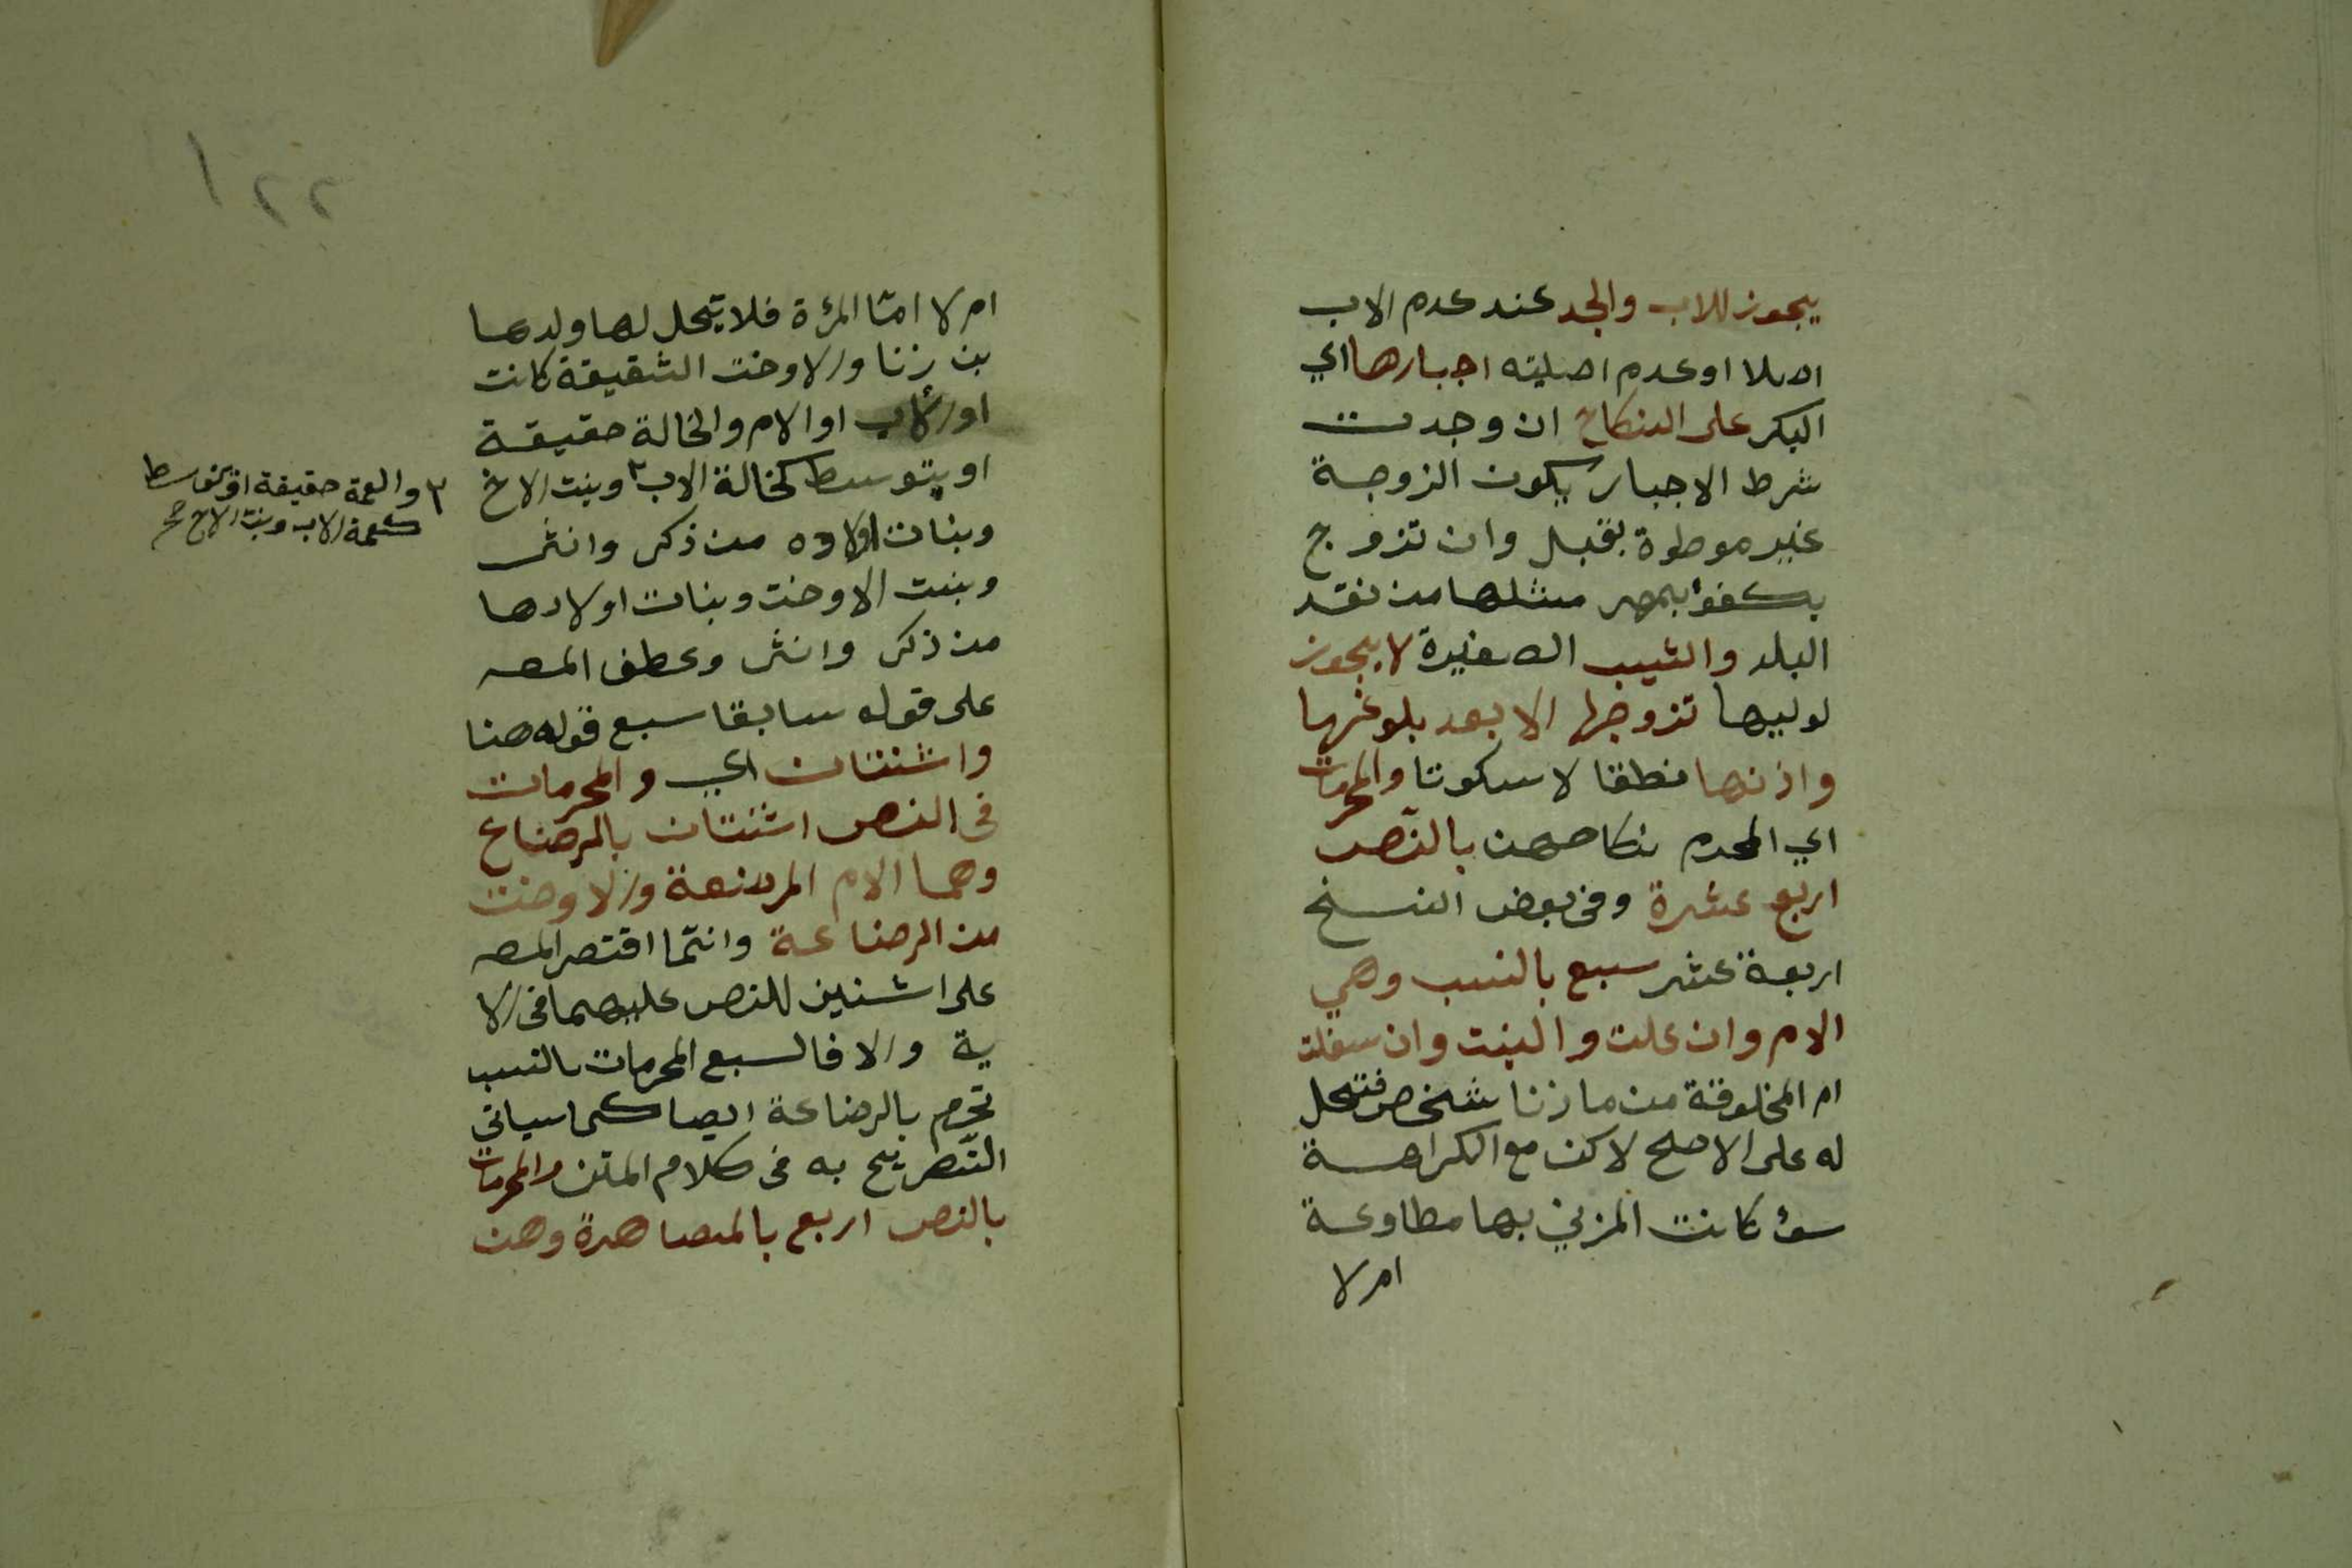 يجوز للاب والجد عند عدم الاب
اصلا او عدم اهليته اجبارها اي
البكر على النكاح ان وجدت
شرط الاجبار بكون الزوجة
غير موطوة بقبل وان تزوج
بكفوا بمهر مثلها من نقد
البلد والثيب الصغيرة لا يجوز
لوليها تزوجها الا بعد بلوغها
واذنها نطقا لا سكوتا والمحرمات
اي المحرم نكاحهن بالنّص
اربع عشرة وفى بعض النسخ
اربعة عشر سبع بالنسب وهي
الام وان علت والبنت وان سفلت
ام المخلوقة من ما زنا شخص فتحل
له على الاصح لاكن مع الكراهة
سوٴ كانت المزني بها مطاوعة
ام لا
١٢٢
ام لا امّا المرٴة فلا يحل لها ولدها
من زنا والاوخت الشقيقة كانت
او لأب او الام والخالة حقيقة
او بتوسط كخالة الاب ٢ وبنت الاخ
وبنات اولاده من ذكر وانثى
وبنت الاوخت وبنات اولادها
من ذكر وانثى وعطف المصـ
على قوله سابقا سبع قوله هنا
واثنتان اي والمحرمات
فى النص اثنتان بالرضاع
وهما الام المرضعة والاوخت
من الرضاعة وانّما اقتصر المصـ
على اثنين للنص عليهما فى الا
ية والا فالسبع المحرمات بالنسب
تحرم بالرضاعة ايضا كما سياتي
التّصريح به فى كلام المتن والمحرمات
بالنص اربع بالمصاهرة وهن
٢ والعمة حقيقة او بتوسط
كعمة الاب وبنت الاخ صح